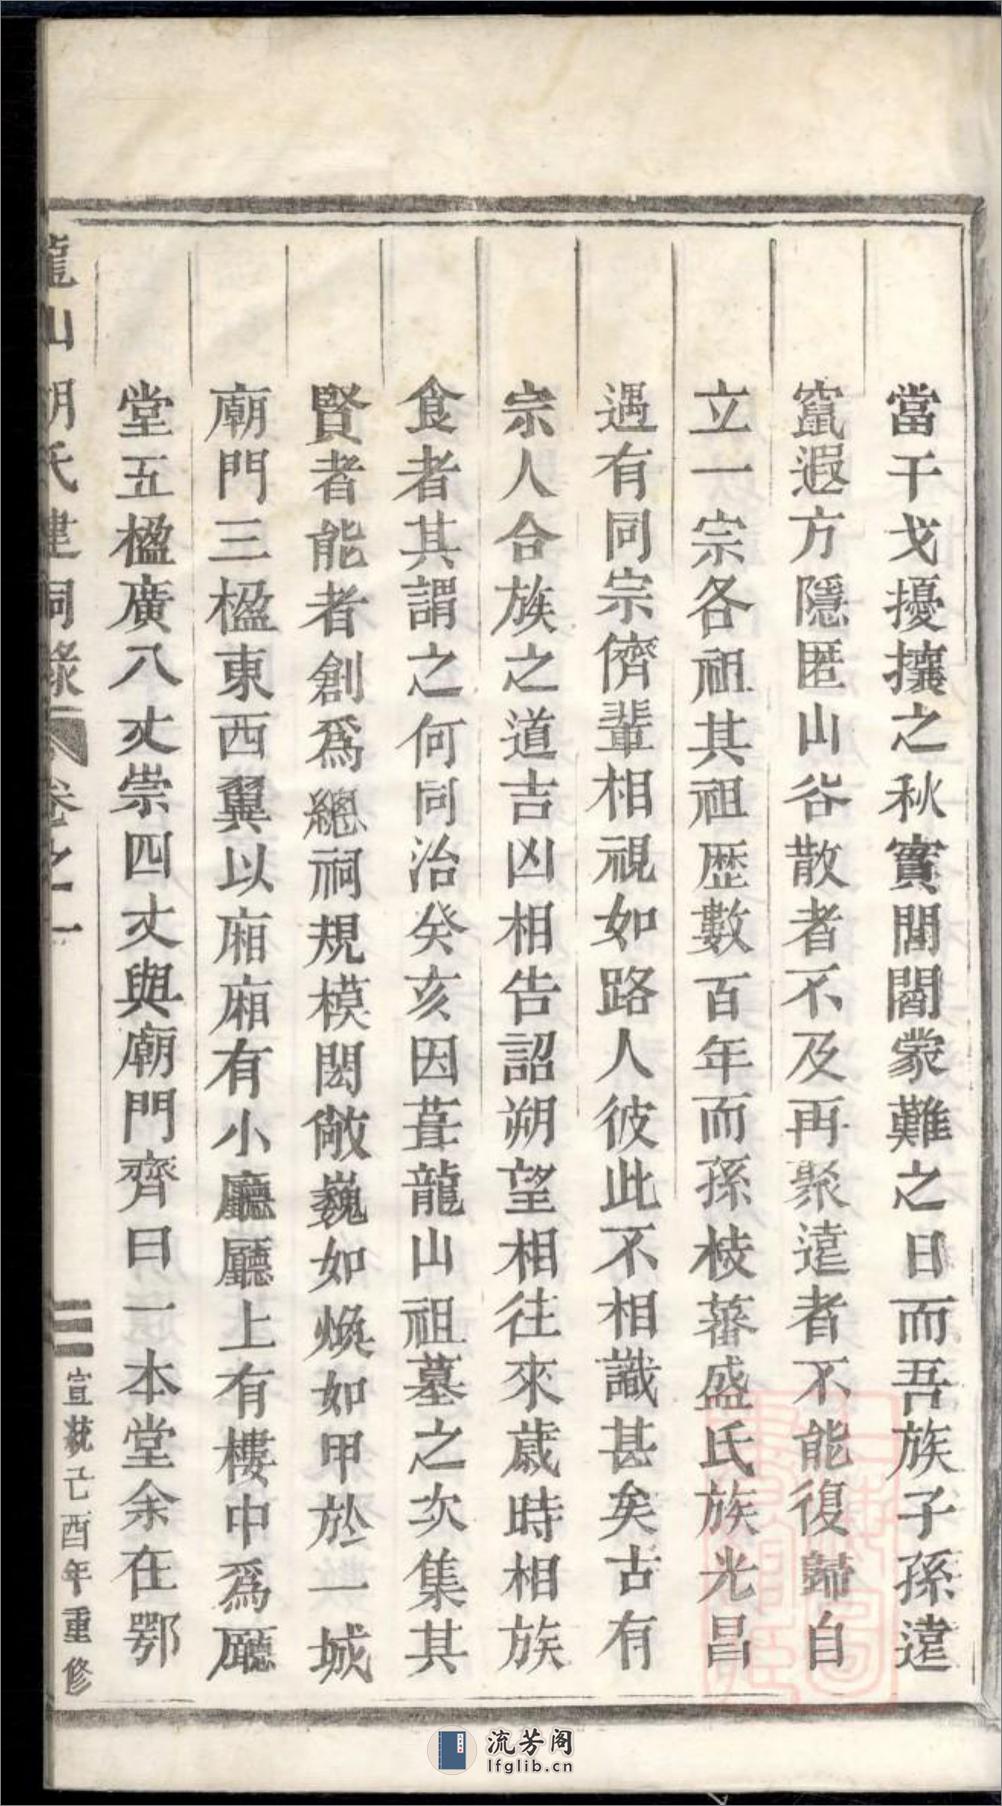 當干戈擾攘之秋實閭閻蒙難之日而吾族子孫遠
竄遐方隱匿山谷散者不及再聚遠者不能復歸自
立一宗各祖其祖歷數百年而孫枝蕃盛氏族光昌
遇有同宗儕輩相視如路人彼此不相識甚矣古有
宗人合族之道吉凶相告詔朔望相往來歲時相族
食者其謂之何同治癸亥因葺龍山祖墓之次集其
賢者能者創爲總祠規模閎敞巍如煥如甲於一城
廟門三楹東西翼以廂廂有小廳廳上有樓中爲廳
堂五楹廣八丈崇四丈與廟門齊曰一本堂余在鄂
龍山胡氏建祠錄 卷之一 二 宣統己酉年重修
流芳阁
lfglib.cn